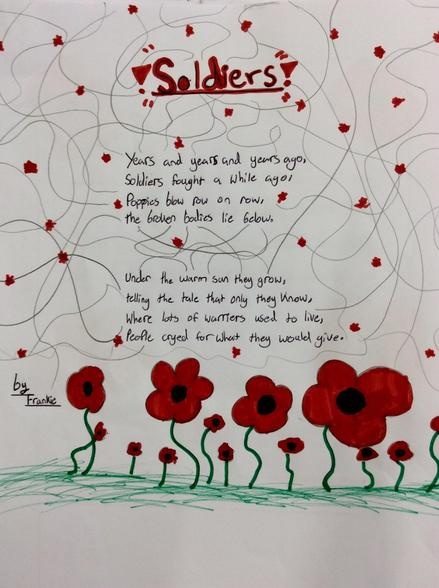 Soldiers
Years and years and years ago,
Soldiers fought a while ago,
Poppies blow row on row,
the broken bodies lie below.
Under the warm sun they grow,
telling the tale that only they know,
Where lots of warriers used to live,
People cryed for what they would give.
by
Frankie